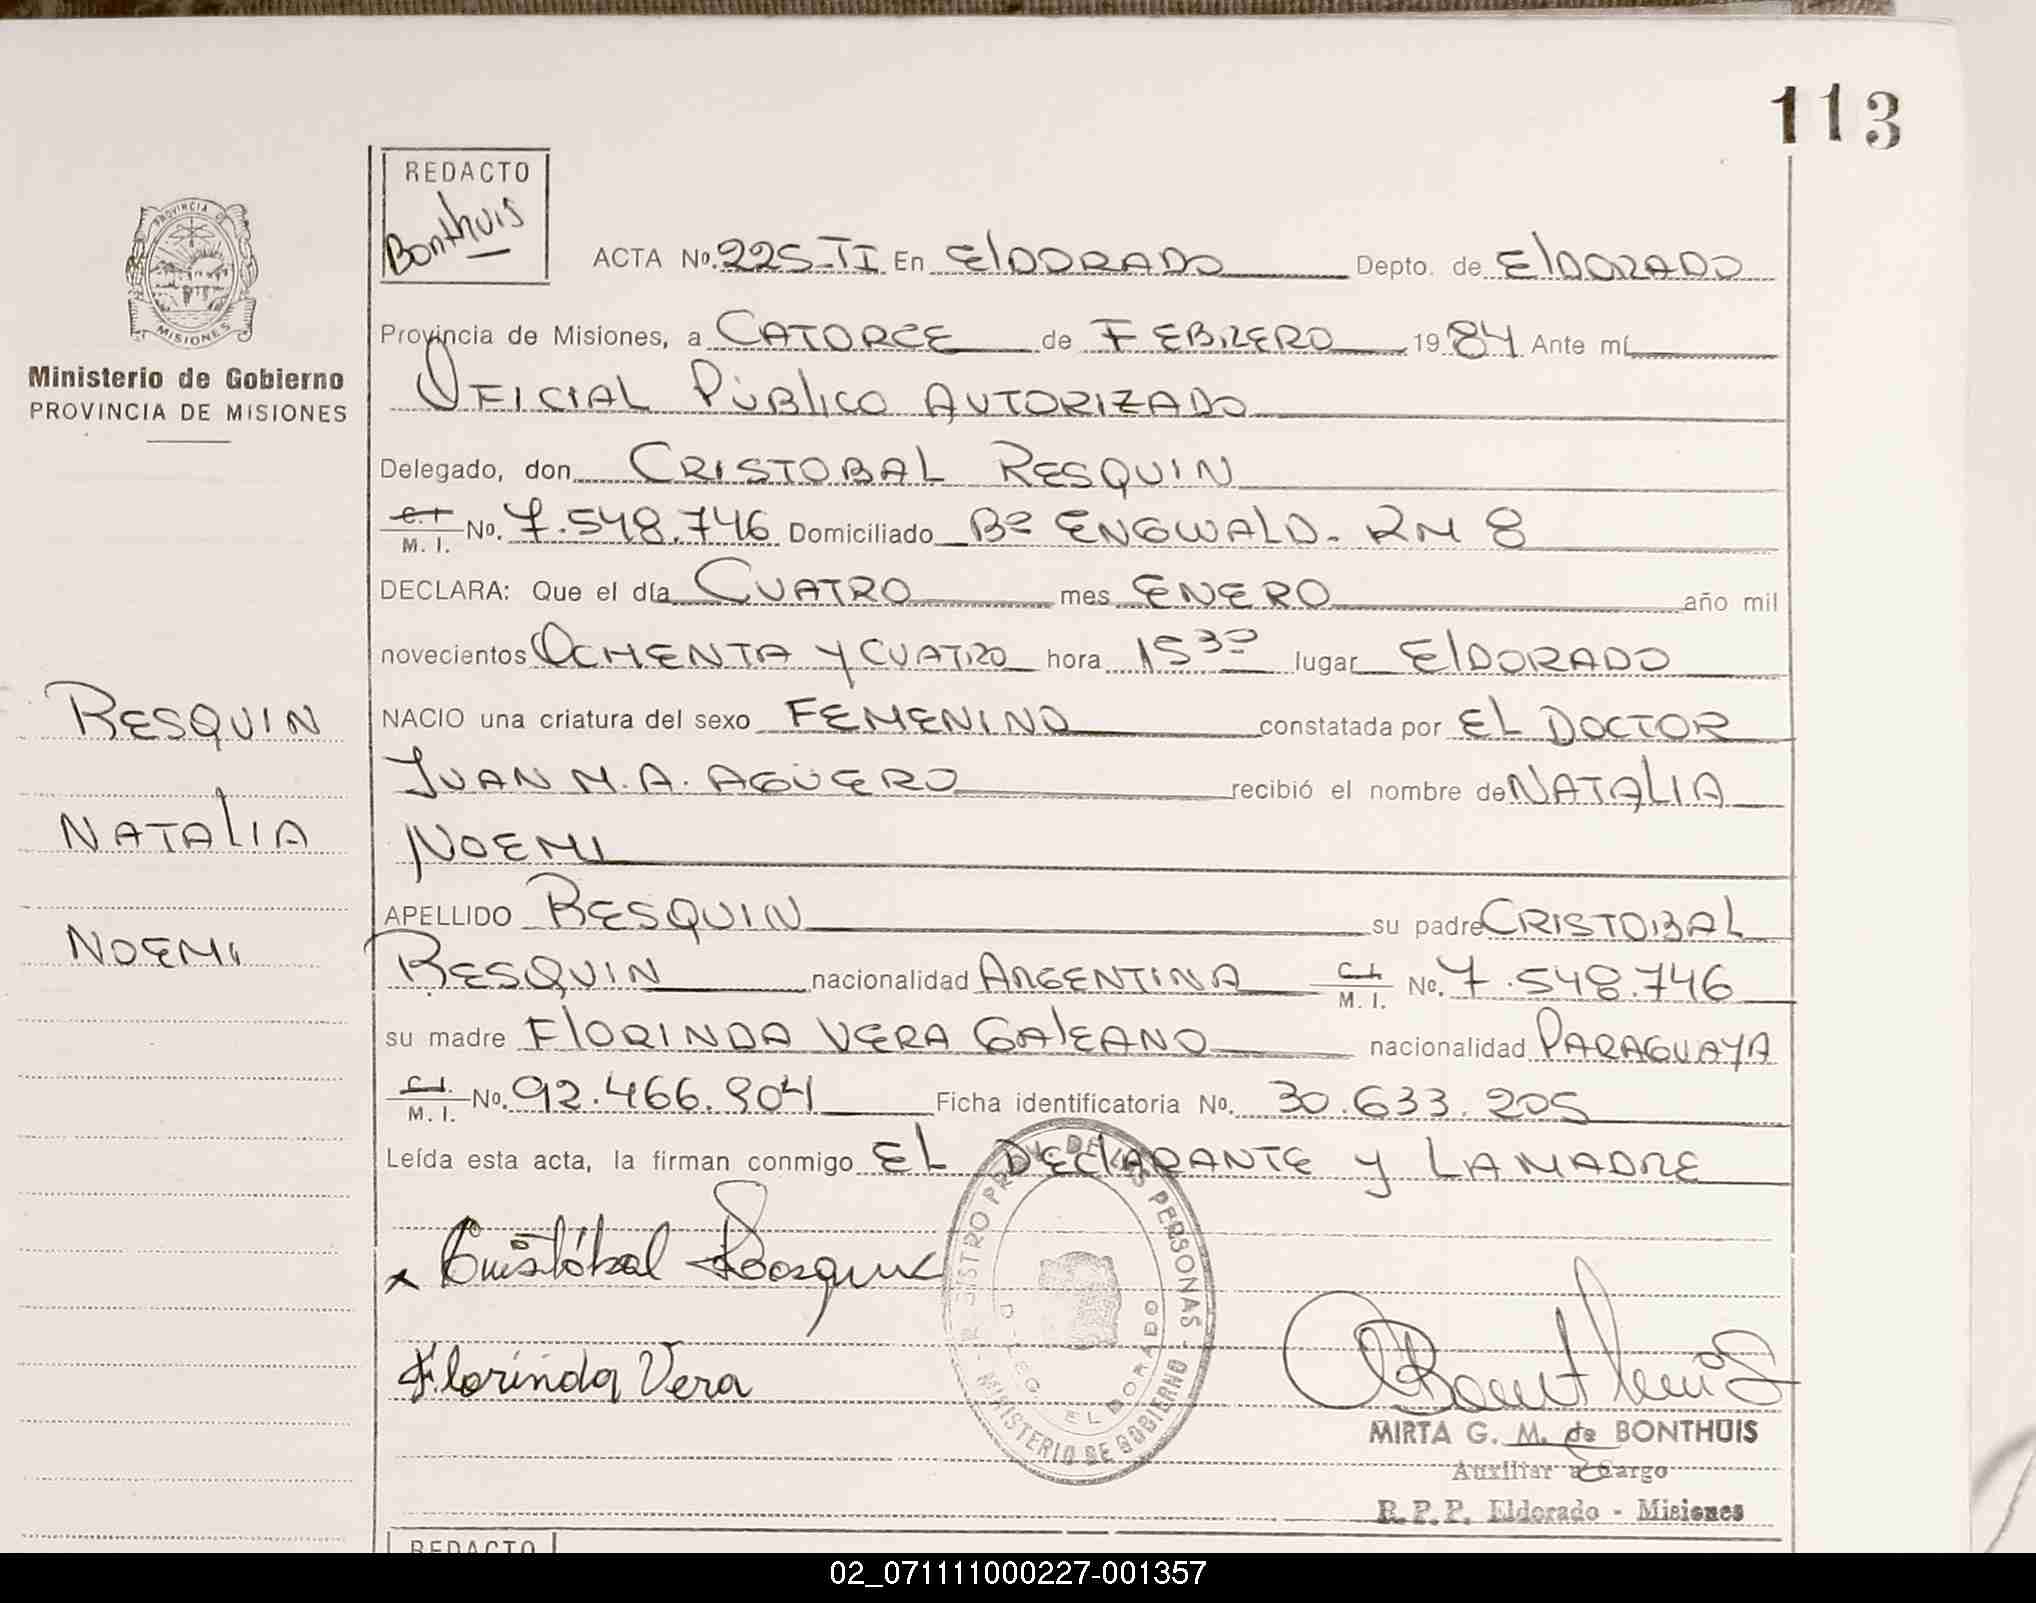 113
REDACTO
Bonthuis
PROVINCIA DE
MISIONES
Ministerio de Gobierno
PROVINCIA DE MISIONES
ACTA No. 225-TI En ElDORADO Depto. de ElDORADO
Provincia de Misiones, a CATORCE de FEBRERO 1984 Ante mí
OFICIAL PÚBlICO AUTORIZADO
Delegado, don CRISTOBAL RESQUIN
C.I. M. I. No. 7.548.746 Domiciliado Bº ENGWALD. RM 8
DECLARA: Que el día CUATRO mes ENERO año mil
novecientos OCHENTA y CUATRO hora 15 30 lugar ElDORADO
NACIO una criatura del sexo FEMENINO constatada por EL DOCTOR
JUAN M. A. AGÜERO recibió el nombre de NATAlIA
NOEMI
APELLIDO RESQUIN su padre CRISTOBAL
RESQUIN nacionalidad ARGENTINA C.I. M. I. No. 7.548.746
su madre FlORINDA VERA GAlEANO nacionalidad PARAGUAYA
C.I. M. I. No. 92.466.904 Ficha identificatoria No. 30.633.205
Leída esta acta, la firman conmigo EL DEClARANTE y LA MADRE
RESQUIN
NATAlIA
NOEMI
Cristóbal Resquin
Florinda Vera
DE LAS PERSONAS - MINISTERIO DE GOBIERNO
DELEG. ELDORADO
MIRTA G. M. de BONTHUIS
Auxiliar a Cargo
R. P. P. Eldorado - Misiones
REDACTO
02_071111000227-001357